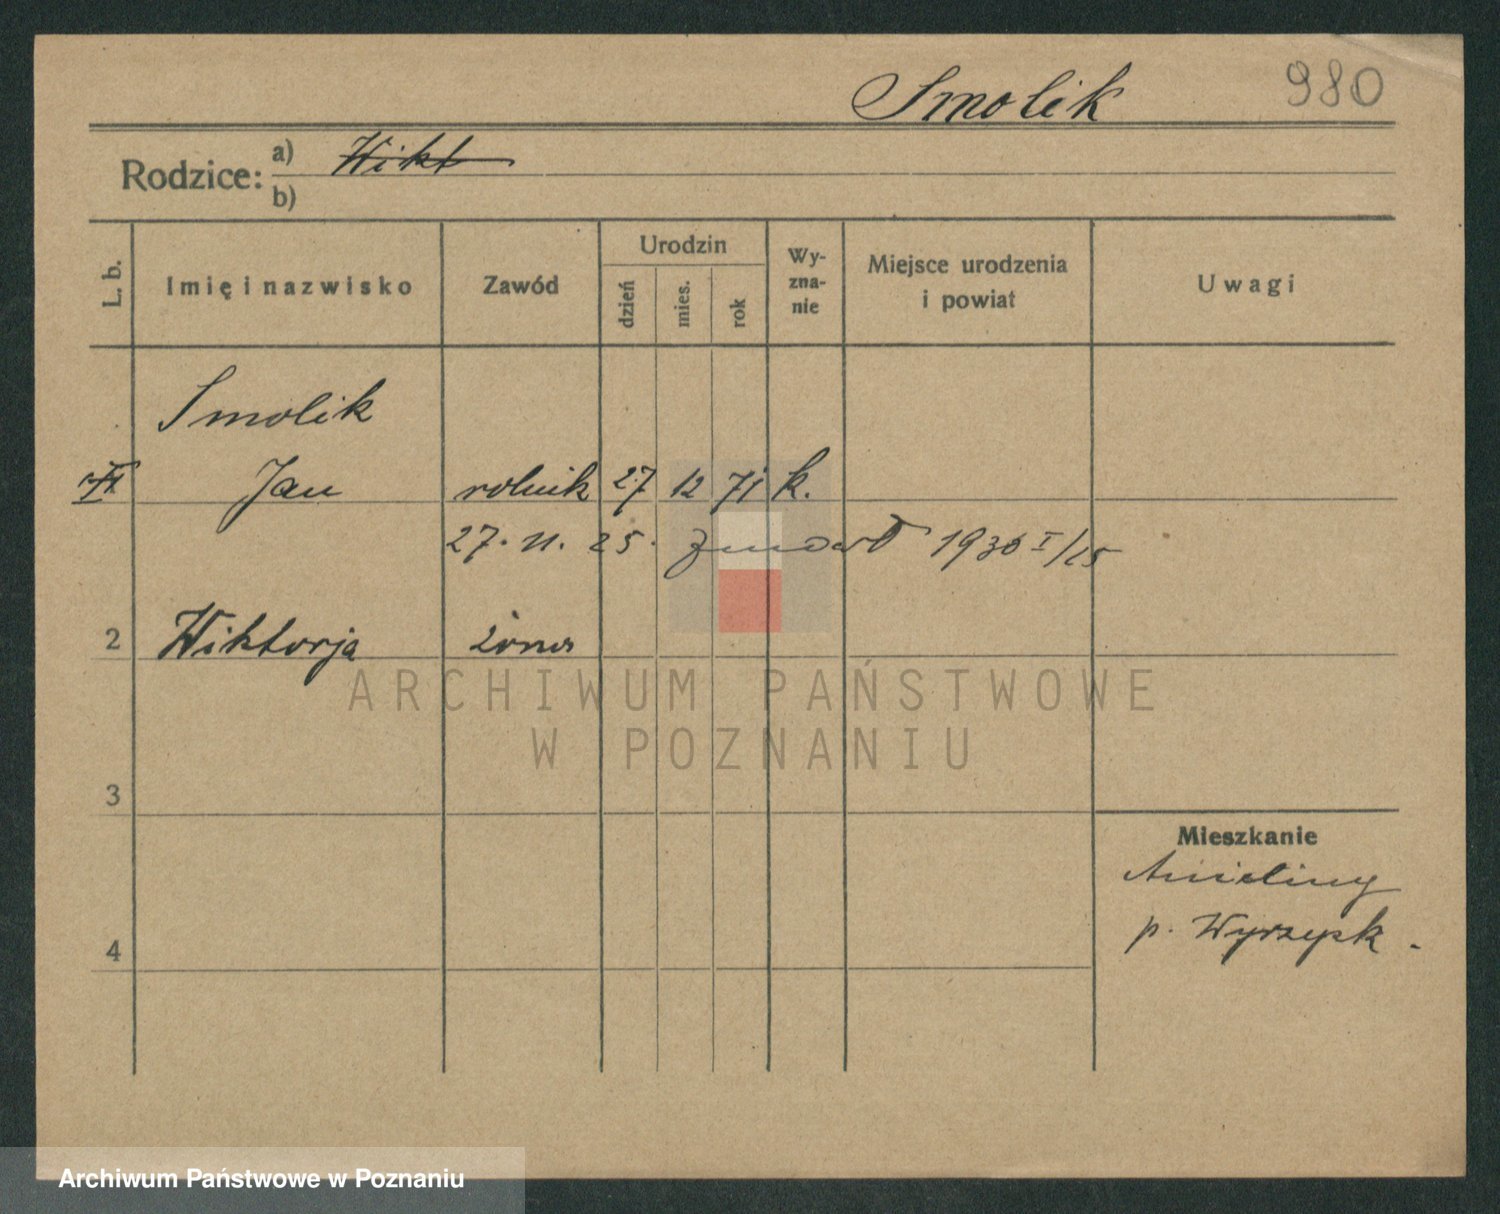 Smolik 980
Rodzice: a) Wikt
b)
L. b. Imię i nazwisko Zawód Urodzin dzień mies. rok Wy-zna-nie Miejsce urodzenia i powiat Uwagi
Smolik
Jan rolnik 27 12 71 k.
27. 11. 25. zmarł 1930 I/15
2 Wiktorja żona
ARCHIWUM PAŃSTWOWE
W POZNANIU
3
Mieszkanie
Anieliny
4 p. Wyrzysk.
Archiwum Państwowe w Poznaniu